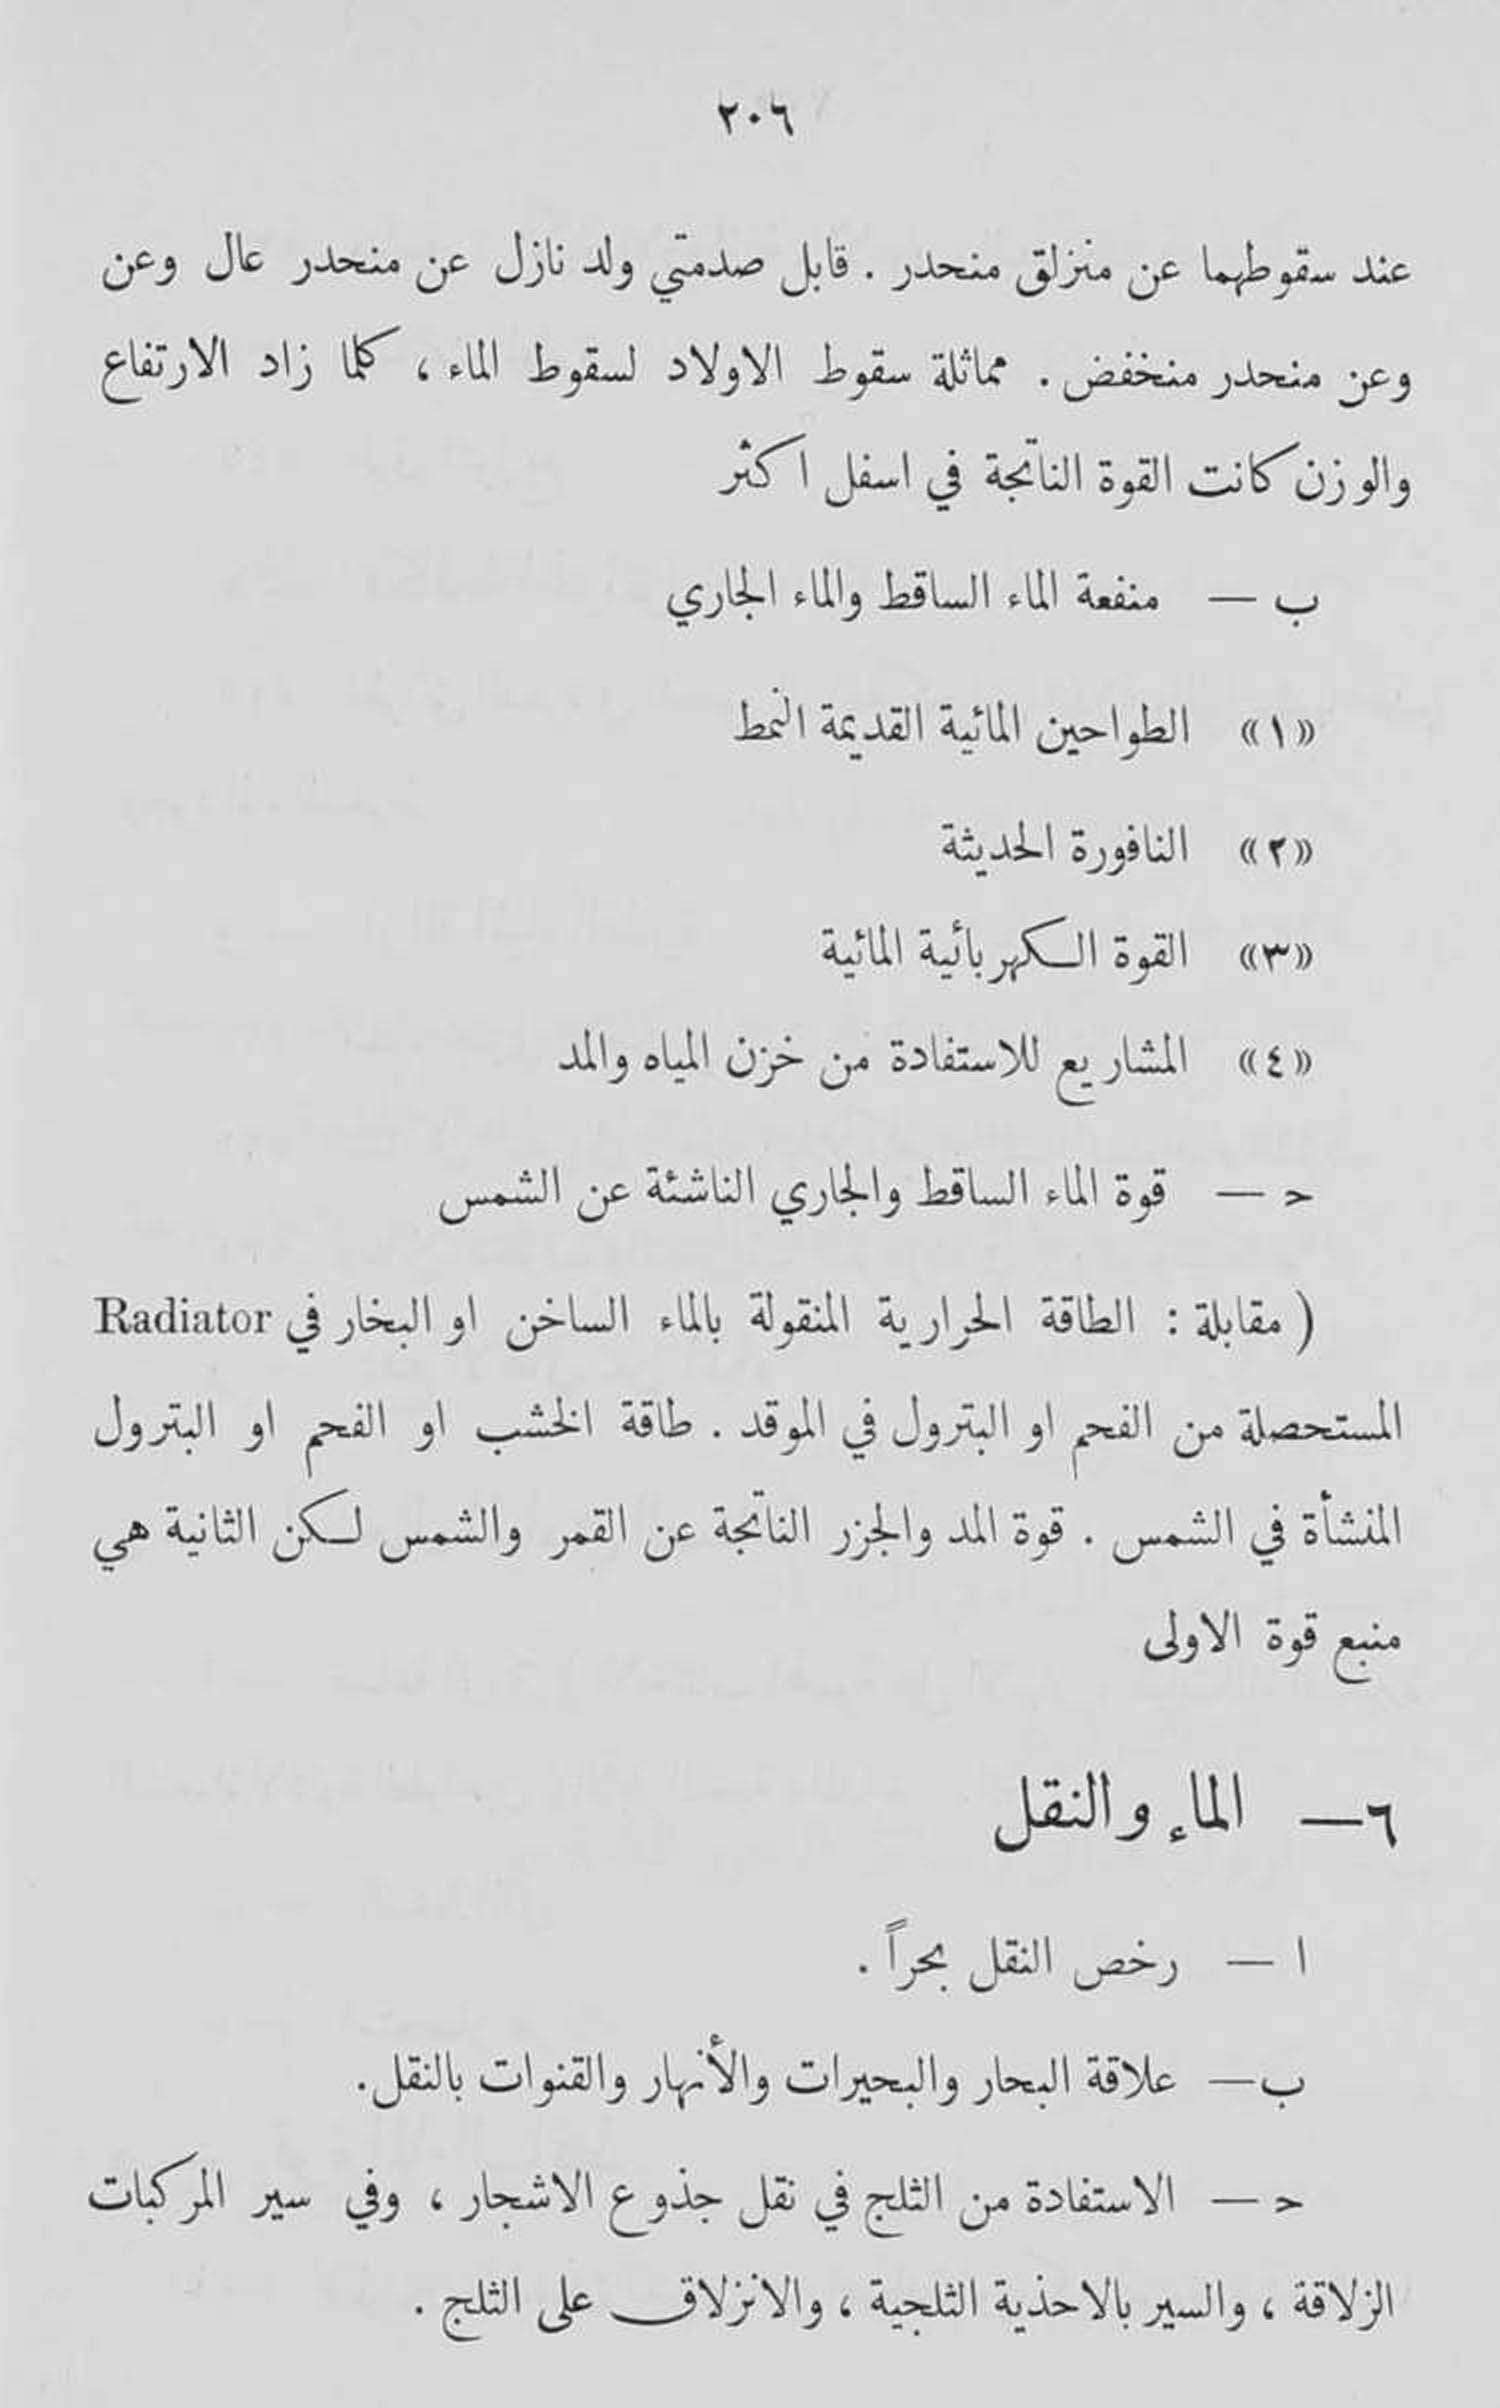 ٢٠٦
عند سقوطهما عن منزلق منحدر . قابل صدمتي ولد نازل عن منحدر عال وعن
وعن منحدر منخفض . مماثلة سقوط الاولاد لسقوط الماء ، كلما زاد الارتفاع
والوزن كانت القوة الناتجة في اسفل اكثر
ب — منفعة الماء الساقط والماء الجاري
«١» الطواحين المائية القديمة النمط
«٢» النافورة الحديثة
«٣» القوة الكهربائية المائية
«٤» المشاريع للاستفادة من خزن المياه والمد
حـ — قوة الماء الساقط والجاري الناشئة عن الشمس
( مقابلة : الطاقة الحرارية المنقولة بالماء الساخن او البخار في Radiator
المستحصلة من الفحم او البترول في الموقد . طاقة الخشب او الفحم او البترول
المنشأة في الشمس . قوة المد والجزر الناتجة عن القمر والشمس لكن الثانية هي
منبع قوة الاولى
٦ — الماء والنقل
ا — رخص النقل بحراً .
ب — علاقة البحار والبحيرات والأنهار والقنوات بالنقل.
حـ — الاستفادة من الثلج في نقل جذوع الاشجار ، وفي سير المركبات
الزلاقة ، والسير بالاحذية الثلجية ، والانزلاق على الثلج .